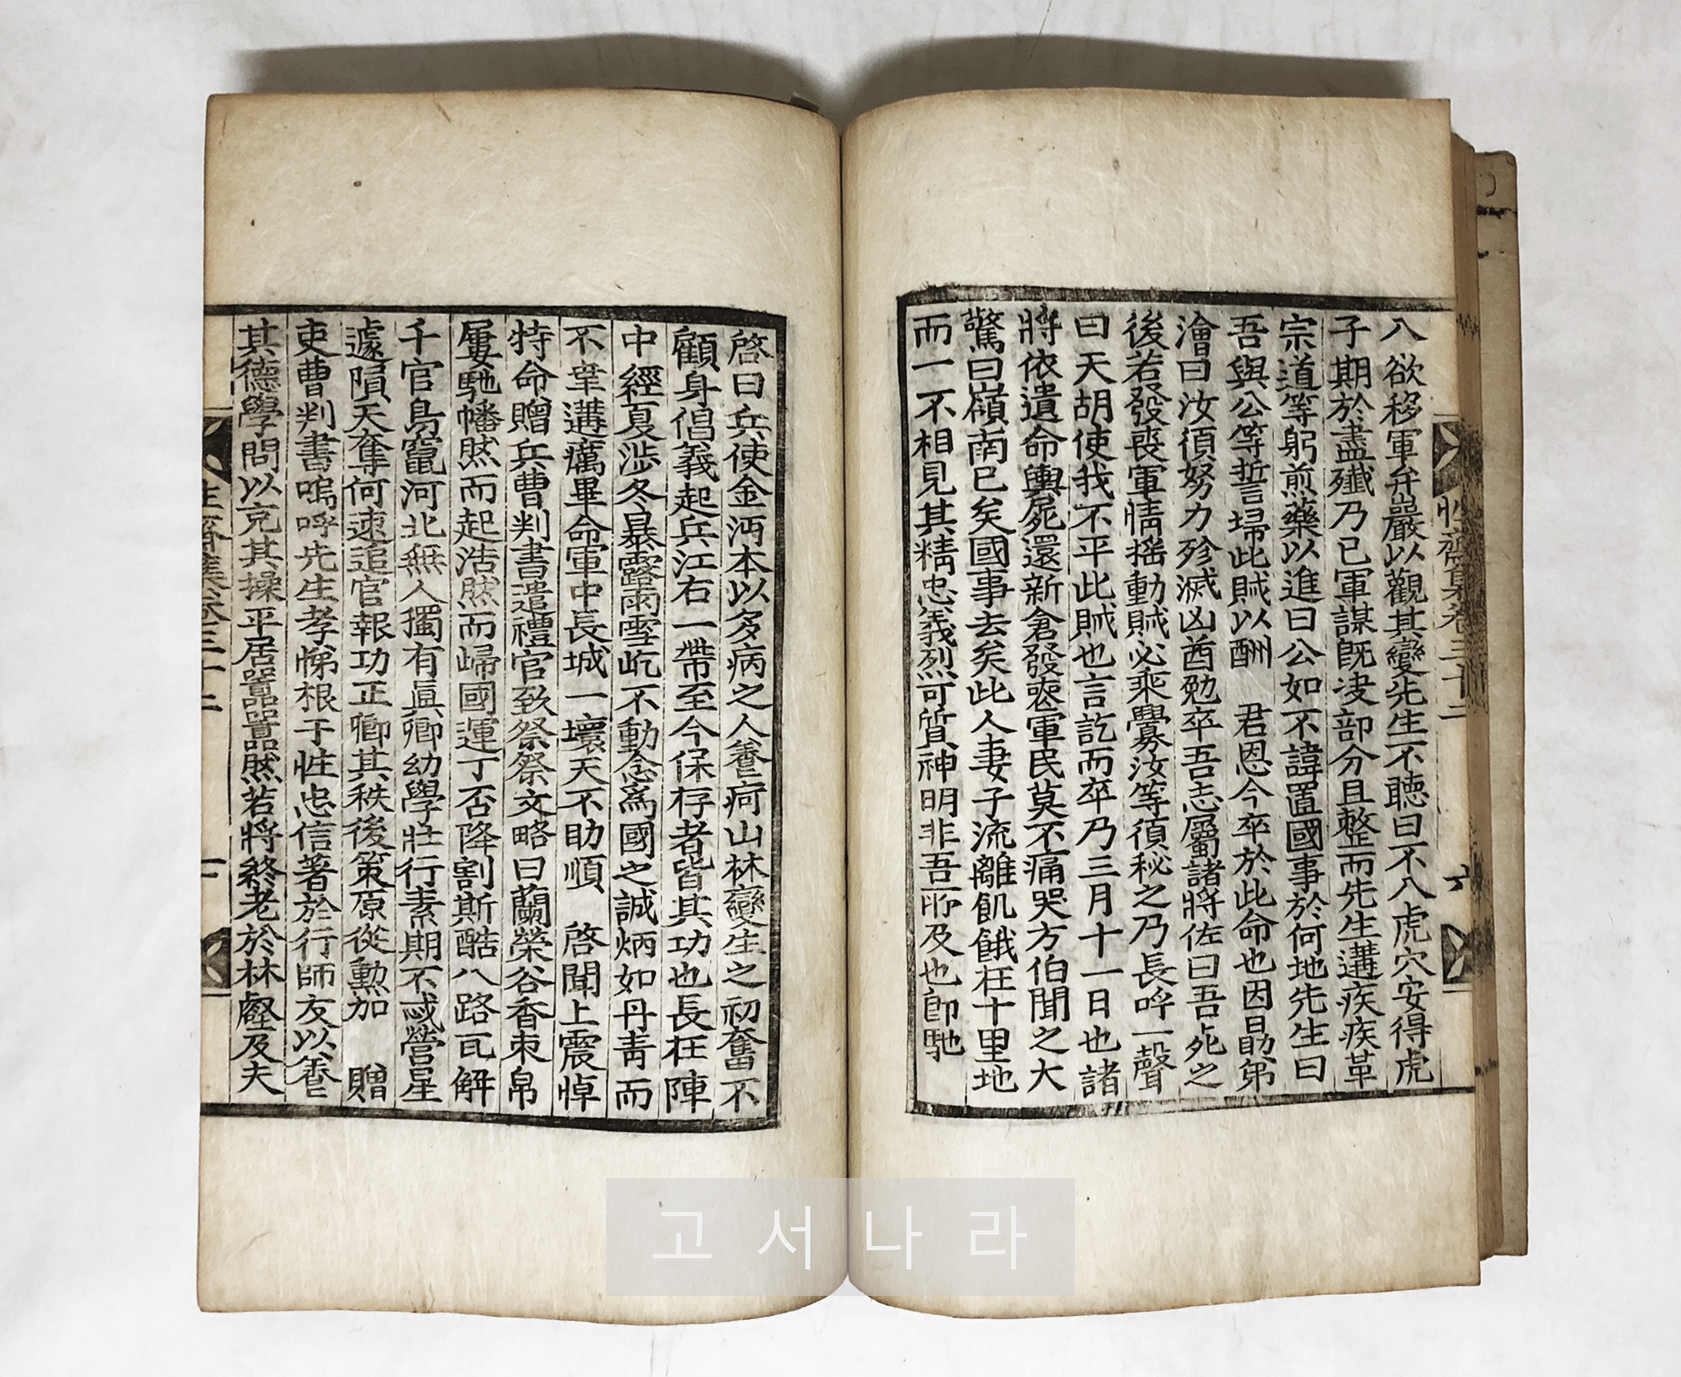 入欲移軍弁嚴以觀其變先生不聽曰不入虎穴安得虎
子期於盡殲乃已軍謀旣淩部分且整而先生遘疾疾革
宗道等躬煎藥以進曰公如不諱置國事於何地先生曰
吾與公等誓掃此賊以酬 君恩今卒於此命也因勗弟
澮曰汝須努力殄滅凶酋勉卒吾志屬諸將佐曰吾死之
後若發喪軍情搖動賊必乘釁汝等須秘之乃長呼一聲
曰天胡使我不平此賊也言訖而卒乃三月十一日也諸
將依遺命輿屍還新倉發喪軍民莫不痛哭方伯聞之大
驚曰嶺南已矣國事去矣此人妻子流離飢餓在十里地
而一不相見其精忠義烈可質神明非吾所及也卽馳
性齋集卷三十二
六
啓曰兵使金沔本以多病之人養疴山林變生之初奮不
顧身倡義起兵江右一帶至今保存者皆其功也長在陣
中經夏涉冬暴露雨雪屹不動念爲國之誠炳如丹靑而
不幸遘癘畢命軍中長城一壞天不助順 啓聞上震悼
特命贈兵曹判書遣禮官致祭祭文略曰蘭榮谷香束帛
屢馳幡然而起浩然而歸國運丁否降割斯酷八路瓦解
千官鳥竄河北無人獨有眞卿幼學壯行素期不忒營星
遽隕天奪何速追官報功正卿其秩後策原從勳加 贈
吏曹判書嗚呼先生孝悌根于性忠信著於行師友以養
其德學問以充其操平居囂囂然若將終老於林壑及夫
性齋集卷三十二
고서나라